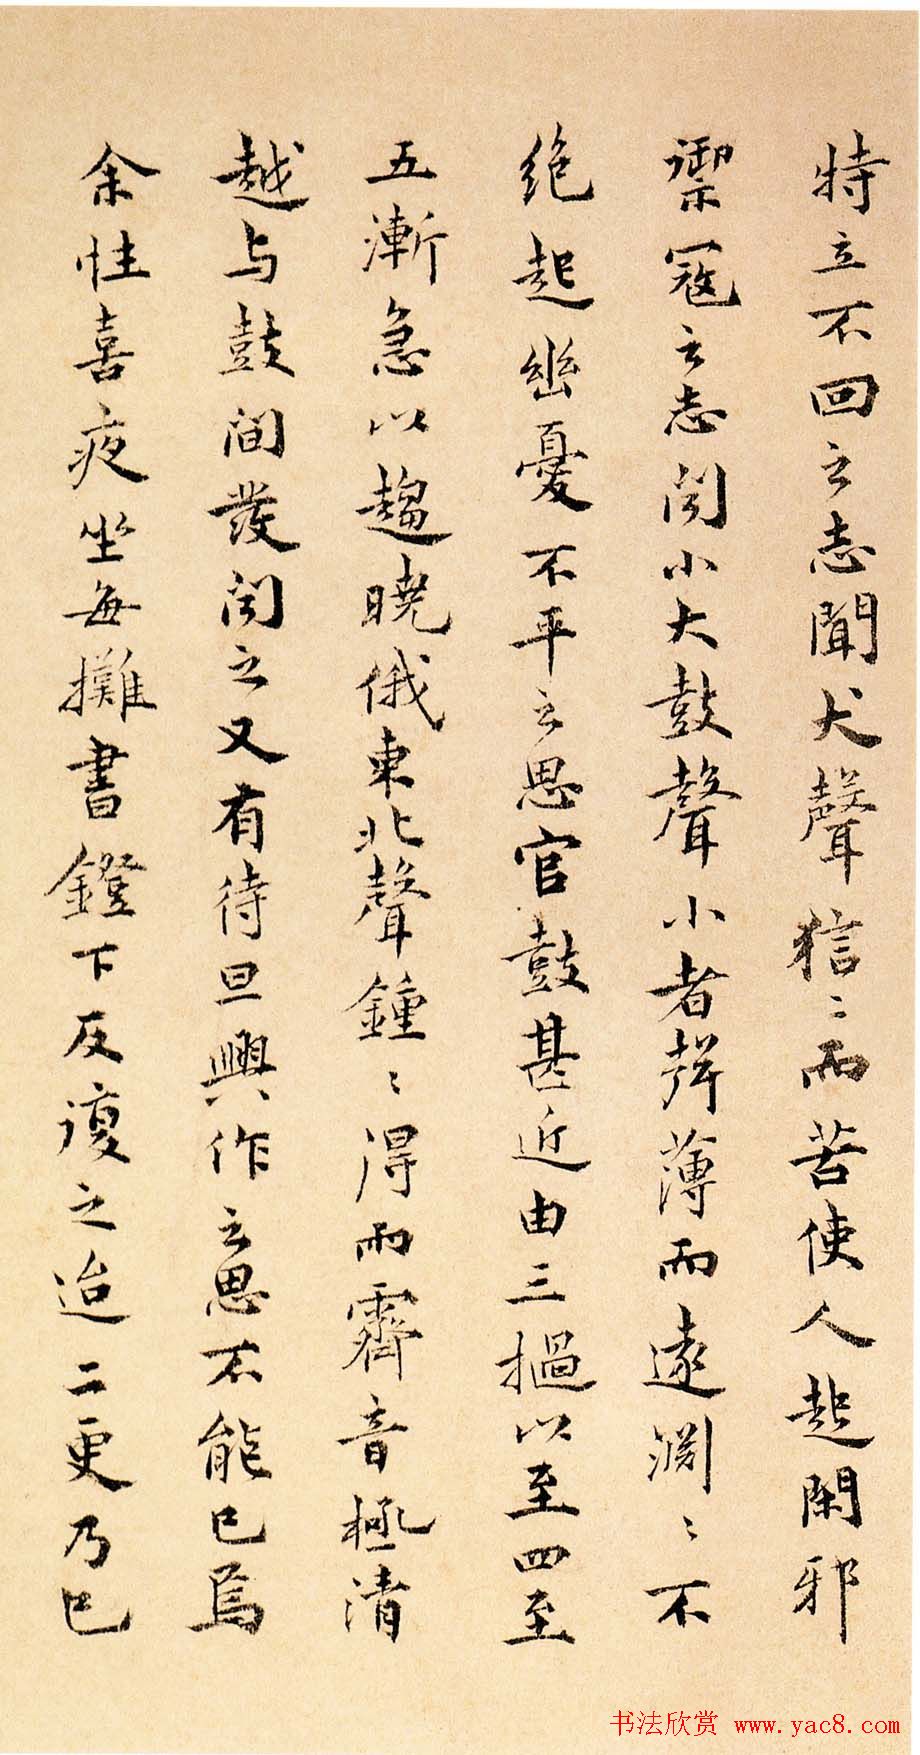 特立不回之志聞犬聲狺〻而苦使人起閑邪
禦寇之志聞小大鼓聲小者聲薄而遠淵〻不
絕起幽憂不平之思官鼓甚近由三撾以至四至
五漸急以趨曉俄東北聲鍾〻得雨霽音極清
越与鼓間發聞之又有待旦興作之思不能已焉
余性喜夜坐每攤書鐙下反復之迨二更乃已
书法欣赏 www.yac8.com